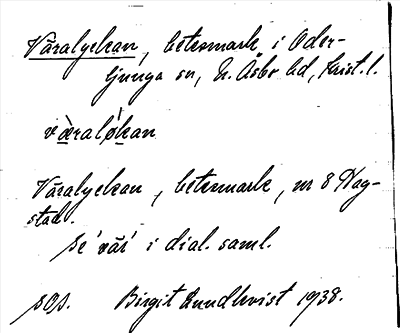 Väralyckan, betesmark i Oder-
ljunga sn, N. Åsbo hd, Krist. l.
væralø̀kan
Väralyckan, betesmark, nr 8 Hag-
stad.
Se 'vär' i dial. saml.
sOp. Birgit Lundkvist 1938.